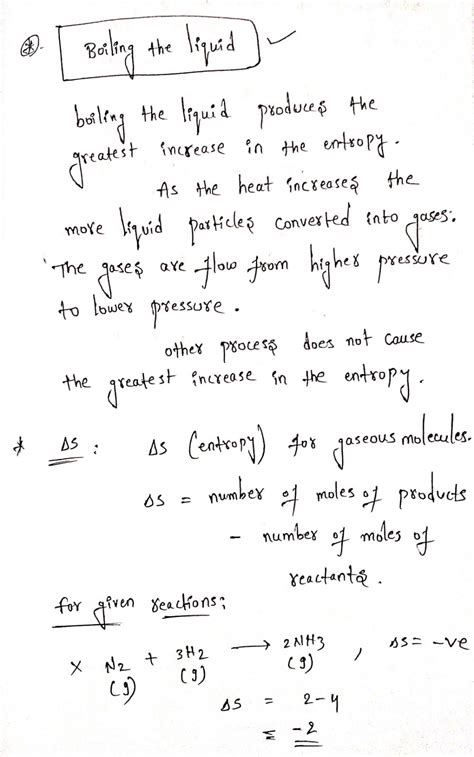 * Boiling the liquid ✓
boiling the liquid produces the
greatest increase in the entropy.
As the heat increases the
more liquid particles converted into gases.
The gases are flow from higher pressure
to lower pressure.
other process does not cause
the greatest increase in the entropy.
* ΔS : ΔS (entropy) for gaseous molecules.
ΔS = number of moles of products
- number of moles of
reactants.
for given reactions:
× N2 (g) + 3H2 (g) → 2NH3 (g) , ΔS = -ve
ΔS = 2-4
= -2